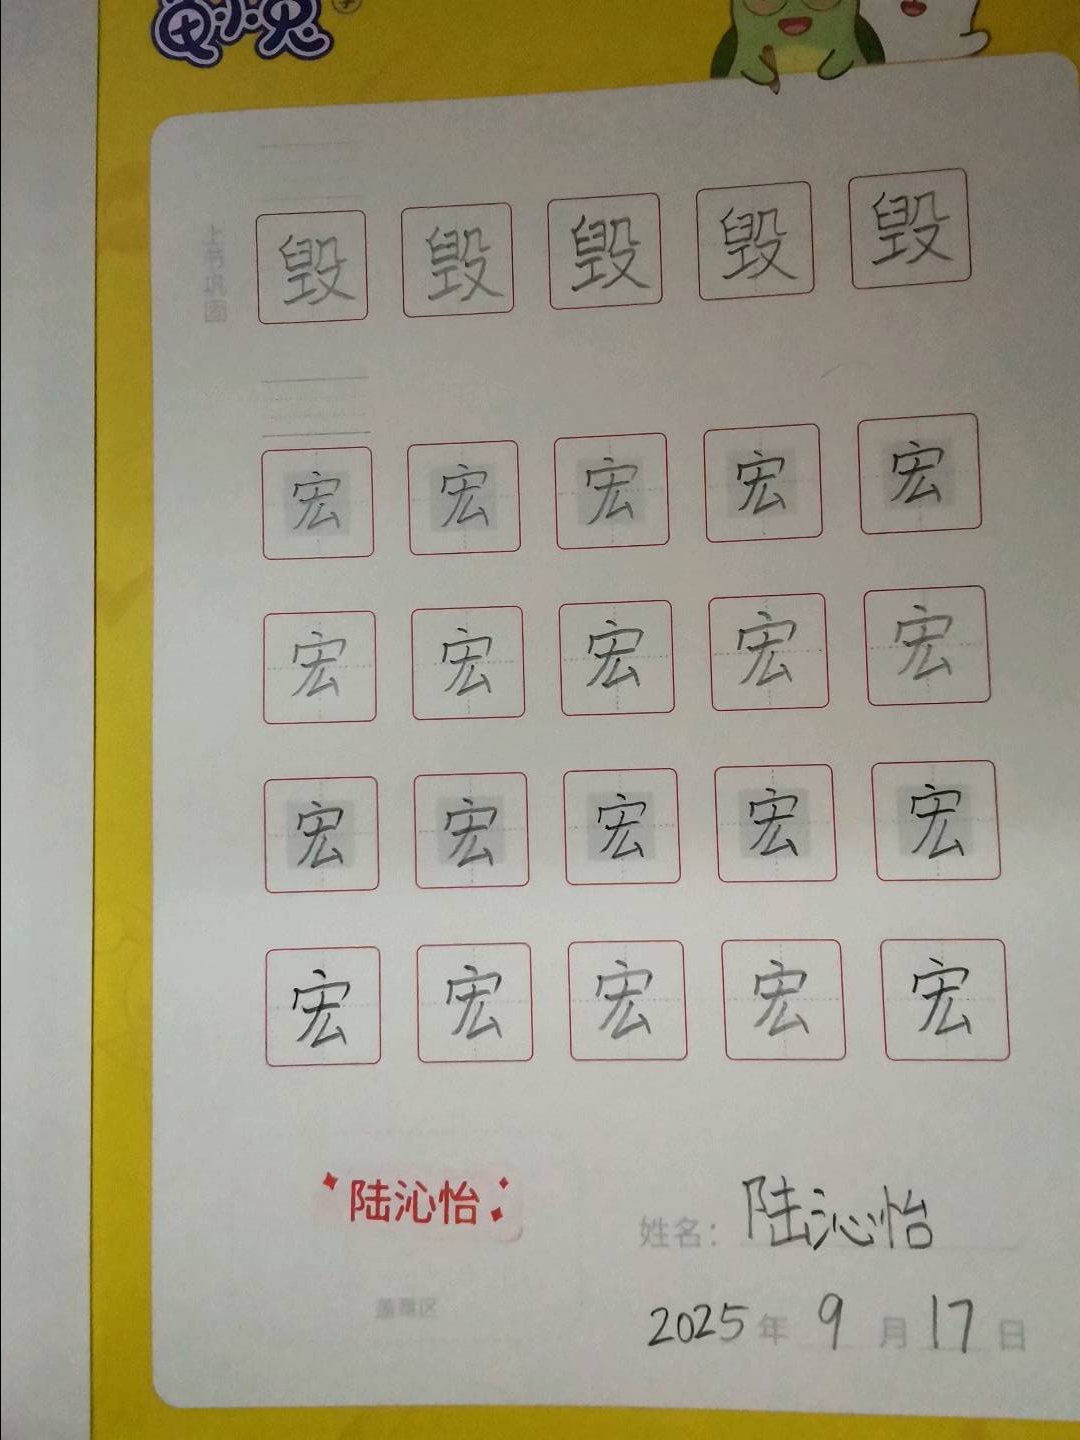 上节巩固
毁 毁 毁 毁 毁
宏 宏 宏 宏 宏
宏 宏 宏 宏 宏
宏 宏 宏 宏 宏
宏 宏 宏 宏 宏
陆沁怡
姓名：陆沁怡
盖章区
2025年9月17日